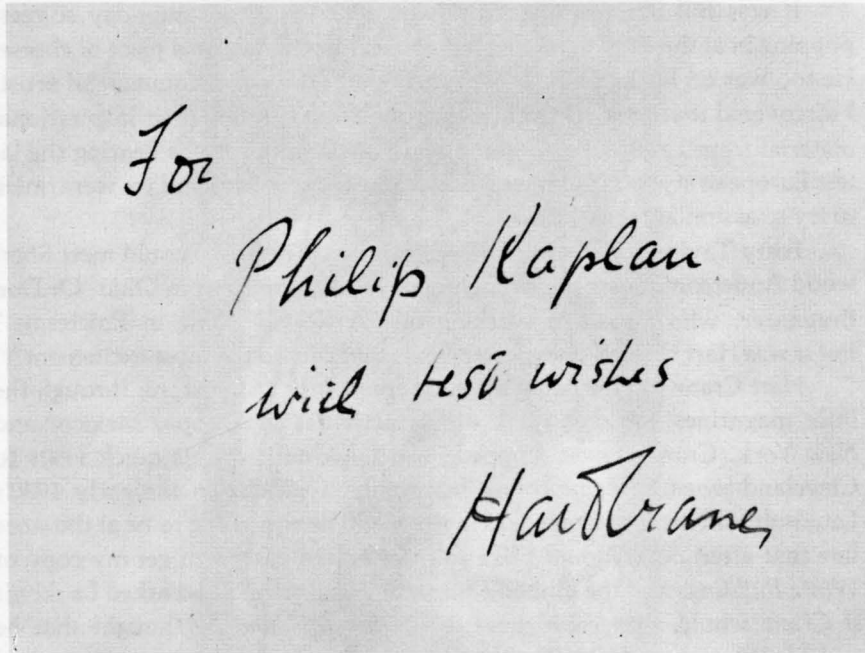 For
Philip Kaplan
with best wishes
Hart Crane